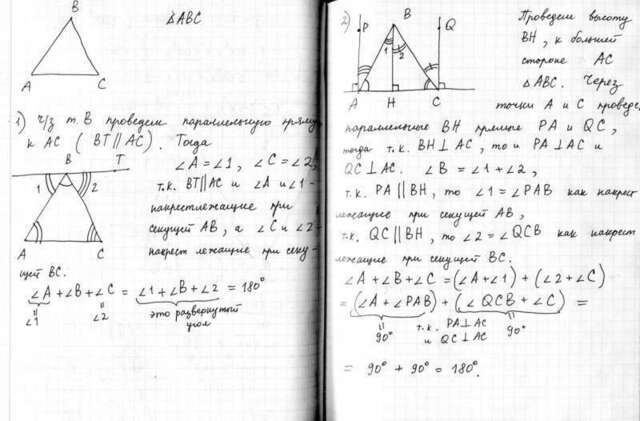 B
△ABC
A C
1) Ч/з т. B проведем параллельную прямую
к AC ( BT ∥ AC ). Тогда
B T
1 2
∠A = ∠1 , ∠C = ∠2,
т.к. BT∥AC и ∠A и ∠1 -
накрестлежащие при
секущей AB, а ∠C и ∠2 -
A C
накрест лежащие при секу-
щей BC.
∠A + ∠B + ∠C = ∠1 + ∠B + ∠2 = 180°
∠1 ∠2 это развернутый
угол
2)
P B Q
1 2
A H C
Проведем высоту
BH , к большей
стороне AC
△ABC. Через
точки A и C проведе
параллельные BH прямые PA и QC,
тогда т.к. BH ⊥ AC , то и PA ⊥ AC и
QC ⊥ AC. ∠B = ∠1 + ∠2 ,
т.к. PA ∥ BH , то ∠1 = ∠PAB как накрест
лежащие при секущей AB ,
т.к. QC ∥ BH , то ∠2 = ∠QCB как накрест
лежащие при секущей BC.
∠A + ∠B + ∠C = (∠A + ∠1) + (∠2 + ∠C)
= (∠A + ∠PAB) + (∠QCB + ∠C) =
= 90° т.к. PA ⊥ AC = 90°
и QC ⊥ AC
= 90° + 90° = 180°.